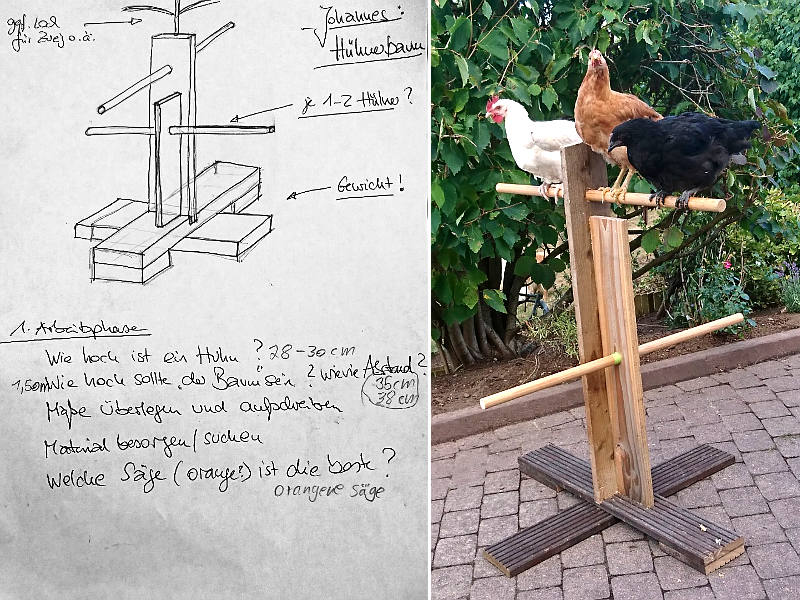 ggf. Loch
für Zweig o.ä.
Johannes:
Hühnerbaum
je 1-2 Hühner?
Gewicht!
1. Arbeitsphase
Wie hoch ist ein Huhn? 28-30cm
1,50m Wie hoch sollte der "Baum" sein? Wieviel Abstand?
35cm
38cm
Maße überlegen und aufschreiben
Material besorgen/suchen
Welche Säge (orange?) ist die beste?
orangene Säge